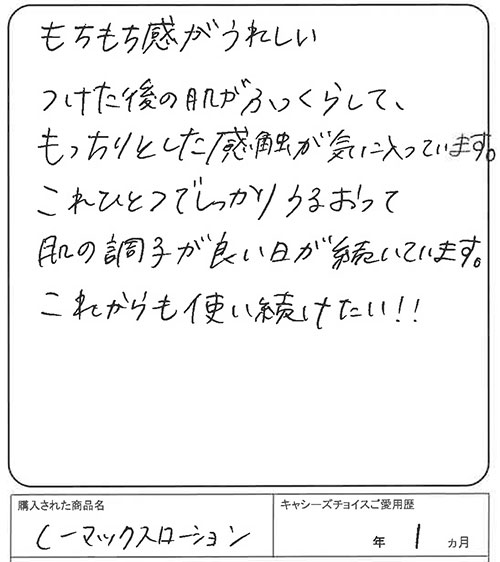 もちもち感がうれしい
つけた後の肌がふっくらして、
もっちりとした感触が気に入っています。
これひとつでしっかりうるおって
肌の調子が良い日が続いています。
これからも使い続けたい!!
購入された商品名
キャシーズチョイスご愛用歴
シーマックスローション
年 1 ヵ月